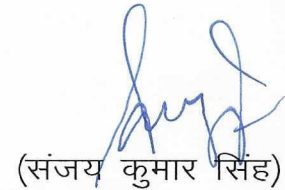 (संजय कुमार सिंह)